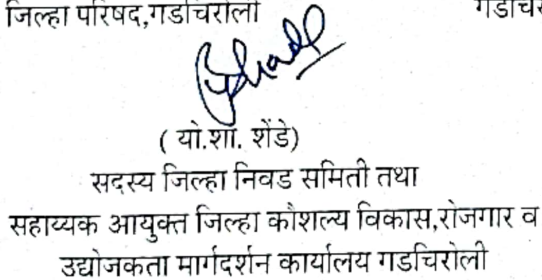 जिल्हा परिषद,गडचिरोली
( यो.शा. शेंडे)
सदस्य जिल्हा निवड समिती तथा
सहाय्यक आयुक्त जिल्हा कौशल्य विकास,रोजगार व
उद्योजकता मार्गदर्शन कार्यालय गडचिरोली